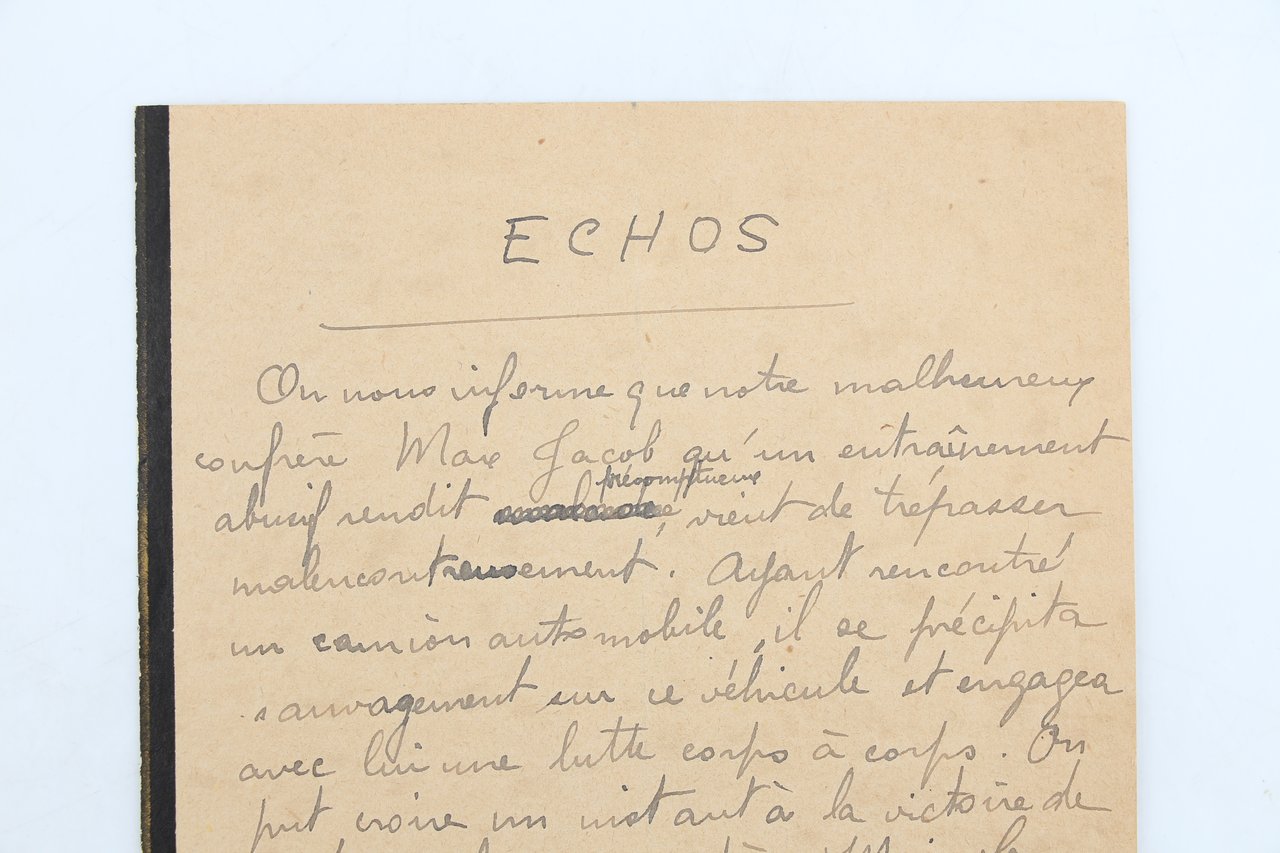 ECHOS
On nous informe que notre malheureux
confrère Max Jacob qu'un entraînement
présomptueux
abusif rendit , vient de trépasser
malencontreusement. Ayant rencontré
un camion automobile, il se précipita
sauvagement sur ce véhicule et engagea
avec lui une lutte corps à corps. On
put croire un instant à la victoire de